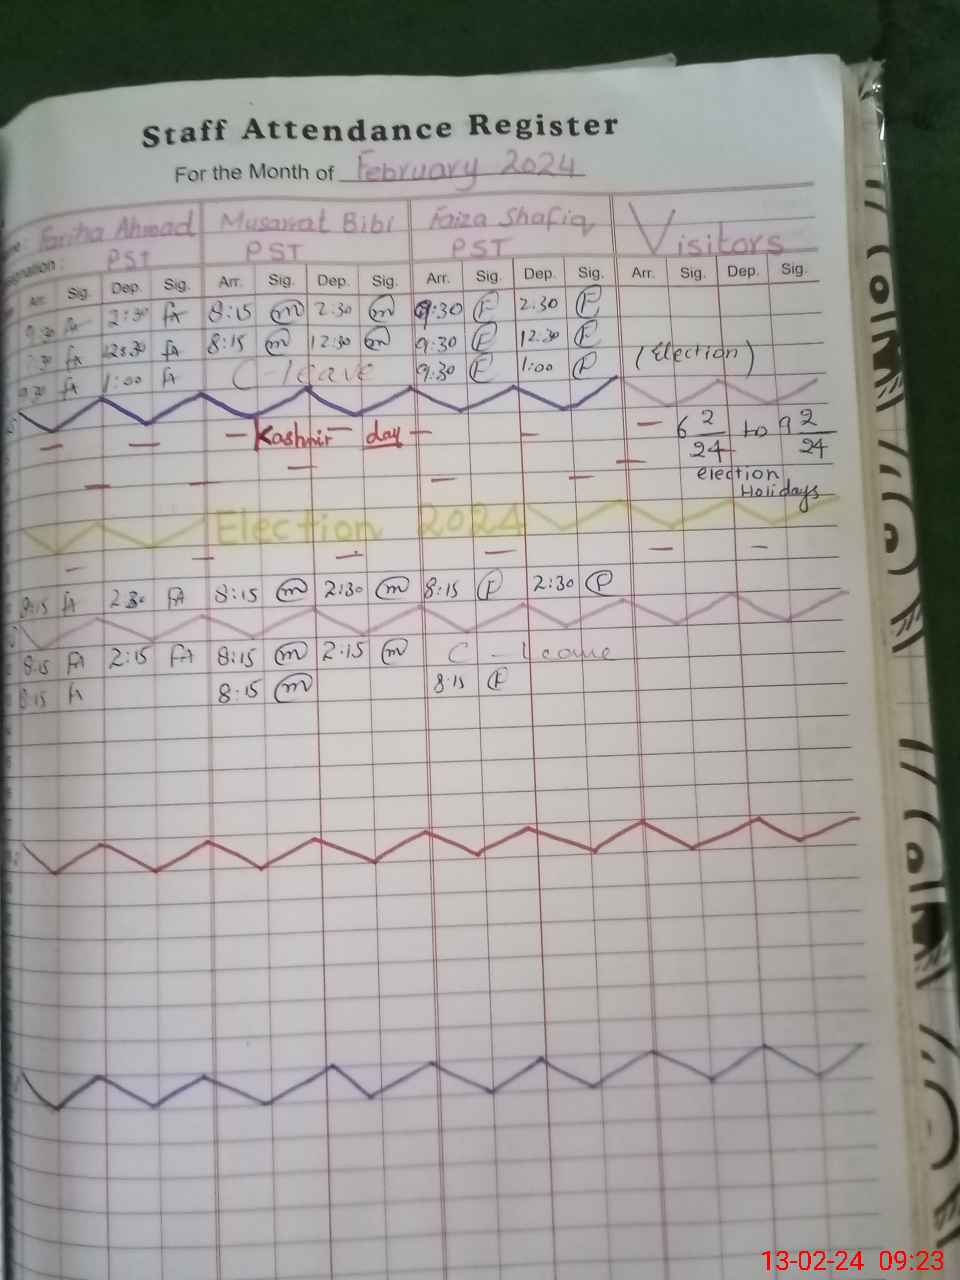 Staff Attendance Register
For the Month of February 2024
Fariha Ahmad Musarrat Bibi Faiza Shafiq Visitors
PST PST PST
Arr. Sig. Dep. Sig. Arr. Sig. Dep. Sig. Arr. Sig. Dep. Sig. Arr. Sig. Dep. Sig.
9:30 FA 2:30 FA 8:15 m 2:30 m 9:30 F 2:30 F
FA 12:30 FA 8:15 m 12:30 m 9:30 F 12:30 F (Election)
9:30 FA 1:00 FA C-leave 9:30 F 1:00 F
— — — Kashmir — day — — — 6 2/24 to 9 2/24
— — — — — — election
Holidays
Election 2024
— — — — — —
8:15 FA 2:30 FA 8:15 m 2:30 m 8:15 F 2:30 F
8:15 FA 2:15 FA 8:15 m 2:15 m C - leave
8:15 FA 8:15 m 8:15 F
13-02-24 09:23